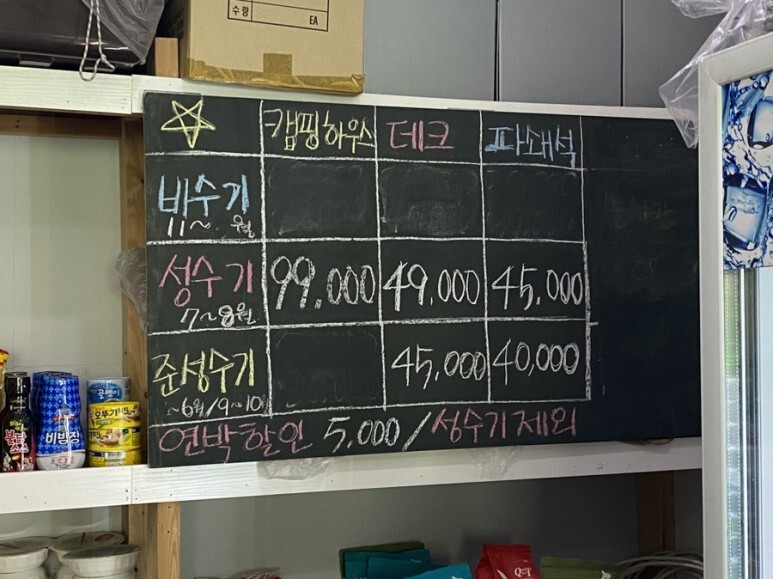 수량 EA
캠핑하우스 데크 파쇄석
비수기
11~ 월
성수기 99,000 49,000 45,000
7~8월
준성수기 45,000 40,000
~6월/9~10월
연박할인 5,000/성수기 제외
불닭
비빔장
골뱅이
오뚜기